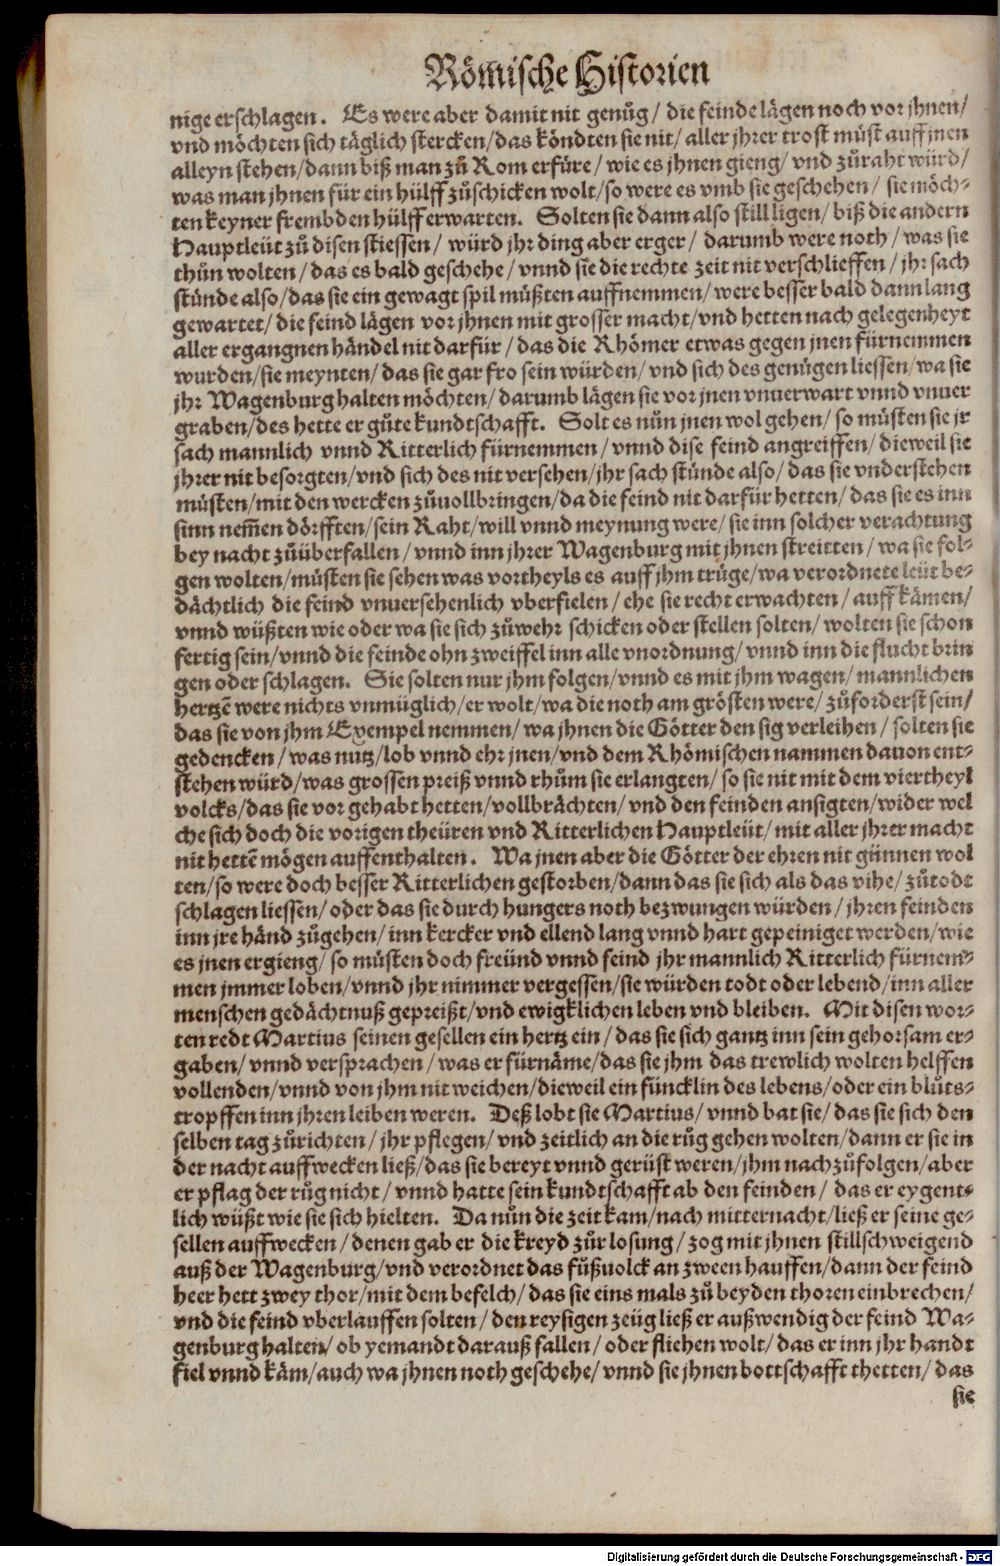 Römische Historien
nige erschlagen. Es were aber damit nit genůg/ die feinde lägen noch vor jhnen/
vnd möchten sich täglich stercken/das köndten sie nit/ aller jhrer trost můst auff jnen
alleyn stehen/dann biß man zů Rom erfüre/ wie es jhnen gieng/ vnd zůraht würd/
was man jhnen für ein hülff zůschicken wolt/so were es vmb sie geschehen/ sie möch⸗
ten keyner frembden hülff erwarten. Solten sie dann also still ligen/ biß die andern
Hauptleüt zů disen stiessen/ würd jhr ding aber erger/ darumb were noth/ was sie
thůn wolten/das es bald geschehe/vnnd sie die rechte zeit nit verschlieffen/ jhr sach
stünde also/das sie ein gewagt spil müßten auffnemmen/were besser bald dann lang
gewartet/die feind lägen vor jhnen mit grosser macht/vnd hetten nach gelegenheyt
aller ergangnen händel nit darfür/ das die Rhömer etwas gegen jnen fürnemmen
wurden/sie meynten/das sie gar fro sein würden/vnd sich des genügen liessen/wa sie
jhr Wagenburg halten möchten/darumb lägen sie vor jnen vnuerwart vnnd vnuer
graben/des hette er gůte kundtschafft. Solt es nůn jnen wol gehen/ so müsten sie jr
sach mannlich vnnd Ritterlich fürnemmen/ vnnd dise feind angreiffen/ dieweil sie
jhrer nit besorgten/vnd sich des nit versehen/jhr sach stünde also/ das sie vnderstehen
müsten/mit den wercken zůvollbringen/da die feind nit darfür hetten/ das sie es inn
sinn nem̃en dörfften/sein Raht/will vnnd meynung were/ sie inn solcher verachtung
bey nacht zůüberfallen/vnnd inn jhrer Wagenburg mit jhnen streitten/ wa sie fol⸗
gen wolten/müsten sie sehen was vortheyls es auff jhm trüge/wa verordnete leüt be⸗
dächtlich die feind vnuersehenlich vberfielen/ ehe sie recht erwachten/ auff kämen/
vnnd wüßten wie oder wa sie sich zůwehr schicken oder stellen solten/ wolten sie schon
fertig sein/vnnd die feinde ohn zweiffel inn alle vnordnung/vnnd inn die flucht brin
gen oder schlagen. Sie solten nur jhm folgen/vnnd es mit jhm wagen/ mannlichen
hertzẽ were nichts vnmüglich/er wolt/wa die noth am grösten were/ zůforderst sein/
das sie von jhm Exempel nemmen/ wa jhnen die Götter den sig verleihen/ solten sie
gedencken/ was nutz/lob vnnd ehr jnen/vnd dem Rhömischen nammen dauon ent⸗
stehen würd/was grossen preiß vnnd rhům sie erlangten/ so sie nit mit dem viertheyl
volcks/das sie vor gehabt hetten/vollbrächten/ vnd den feinden ansigten/wider wel
che sich doch die vorigen theüren vnd Ritterlichen Hauptleüt/ mit aller jhrer macht
nit hettẽ mögen auffenthalten. Wa jnen aber die Götter der ehren nit günnen wol
ten/so were doch besser Ritterlichen gestorben/dann das sie sich als das vihe/ zůtodt
schlagen liessen/ oder das sie durch hungers noth bezwungen würden/ jhren feinden
inn jre händ zůgehen/ inn kercker vnd ellend lang vnnd hart gepeiniget werden/wie
es jnen ergieng/ so müsten doch freünd vnnd feind jhr mannlich Ritterlich fürnem⸗
men jmmer loben/vnnd jhr nimmer vergessen/sie würden todt oder lebend/inn aller
menschen gedächtnuß gepreißt/vnd ewigklichen leben vnd bleiben. Mit disen wor⸗
ten redt Martius seinen gesellen ein hertz ein/ das sie sich gantz inn sein gehorsam er⸗
gaben/ vnnd versprachen/ was er fürnäme/das sie jhm das trewlich wolten helffen
vollenden/vnnd von jhm nit weichen/dieweil ein füncklin des lebens/oder ein blůts⸗
tropffen inn jhren leiben weren. Deß lobt sie Martius/ vnnd bat sie/ das sie sich den
selben tag zůrichten/ jhr pflegen/ vnd zeitlich an die růg gehen wolten/dann er sie in
der nacht auffwecken ließ/das sie bereyt vnnd gerüst weren/jhm nachzůfolgen/aber
er pflag der růg nicht/ vnnd hatte sein kundtschafft ab den feinden/ das er eygent⸗
lich wüßt wie sie sich hielten. Da nůn die zeit kam/nach mitternacht/ließ er seine ge⸗
sellen auffwecken/denen gab er die kreyd zůr losung/ zog mit jhnen stillschweigend
auß der Wagenburg/vnd verordnet das fůßuolck an zween hauffen/dann der feind
heer hett zwey thor/mit dem befelch/das sie eins mals zů beyden thoren einbrechen/
vnd die feind vberlauffen solten/ den reysigen zeüg ließ er außwendig der feind Wa⸗
genburg halten/ ob yemandt darauß fallen/ oder fliehen wolt/ das er inn jhr handt
fiel vnnd käm/auch wa jhnen noth geschehe/ vnnd sie jhnen bottschafft thetten/ das
sie
Digitalisierung gefördert durch die Deutsche Forschungsgemeinschaft - DFG